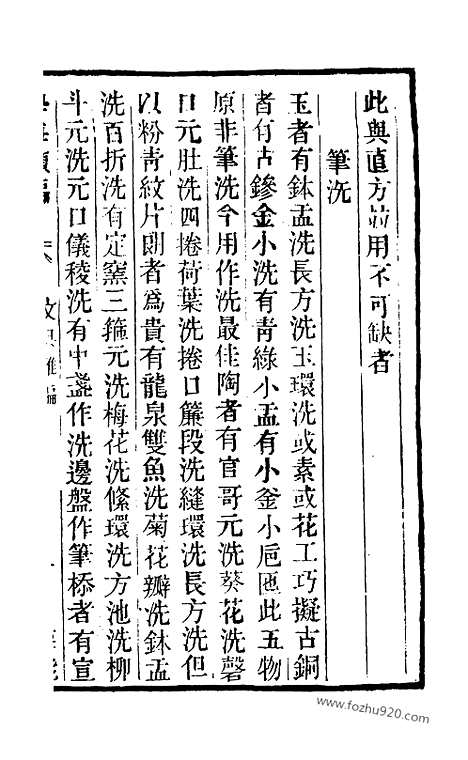 此與直方並用不可缺者
筆洗
玉者有鉢盂洗長方洗玉環洗或素或花工巧擬古銅
者有古鏒金小洗有青綠小盂有小釜小巵匜此五物
原非筆洗今用作洗最佳陶者有官哥元洗葵花洗磬
口元肚洗四捲荷葉洗捲口簾段洗縫環洗長方洗但
以粉青紋片朗者爲貴有龍泉雙魚洗菊花瓣洗鉢盂
洗百折洗有定窯三箍元洗梅花洗絛環洗方池洗柳
斗元洗元口儀稜洗有中盞作洗邊盤作筆㮇者有宣
文具雜編
www.fozhu920.com